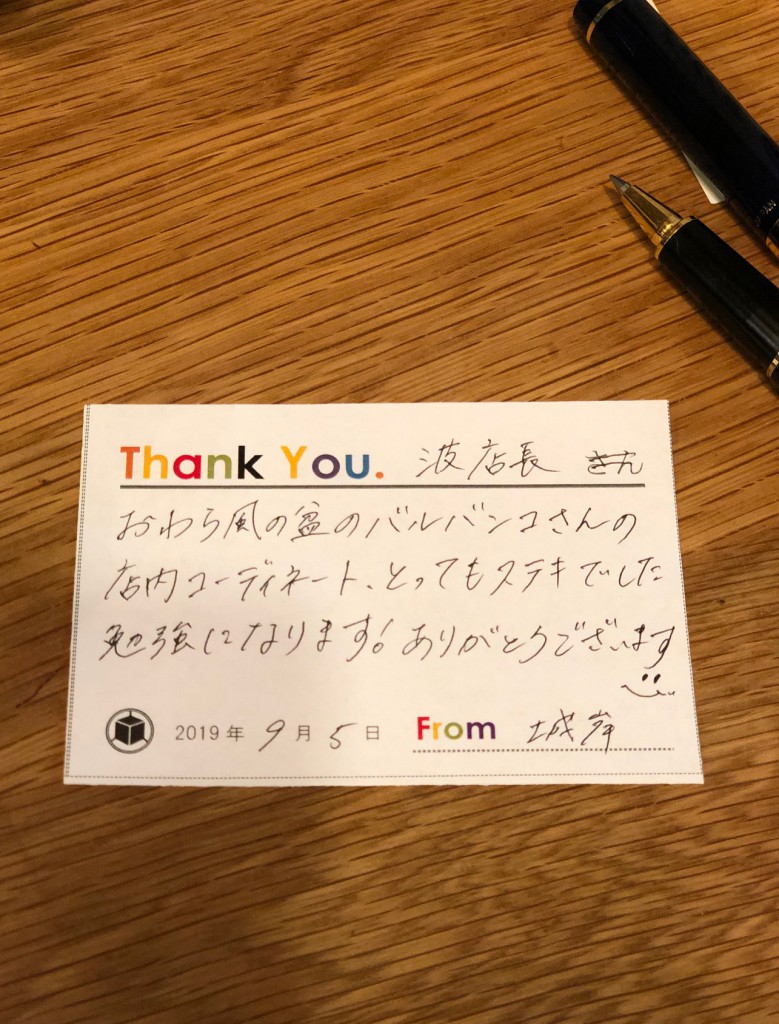 Thank You. 波店長 さん
おわら風の盆のバルバンコさんの
店内コーディネート、とってもステキでした
勉強になります! ありがとうございます
2019年 9月 5日 From 城岸